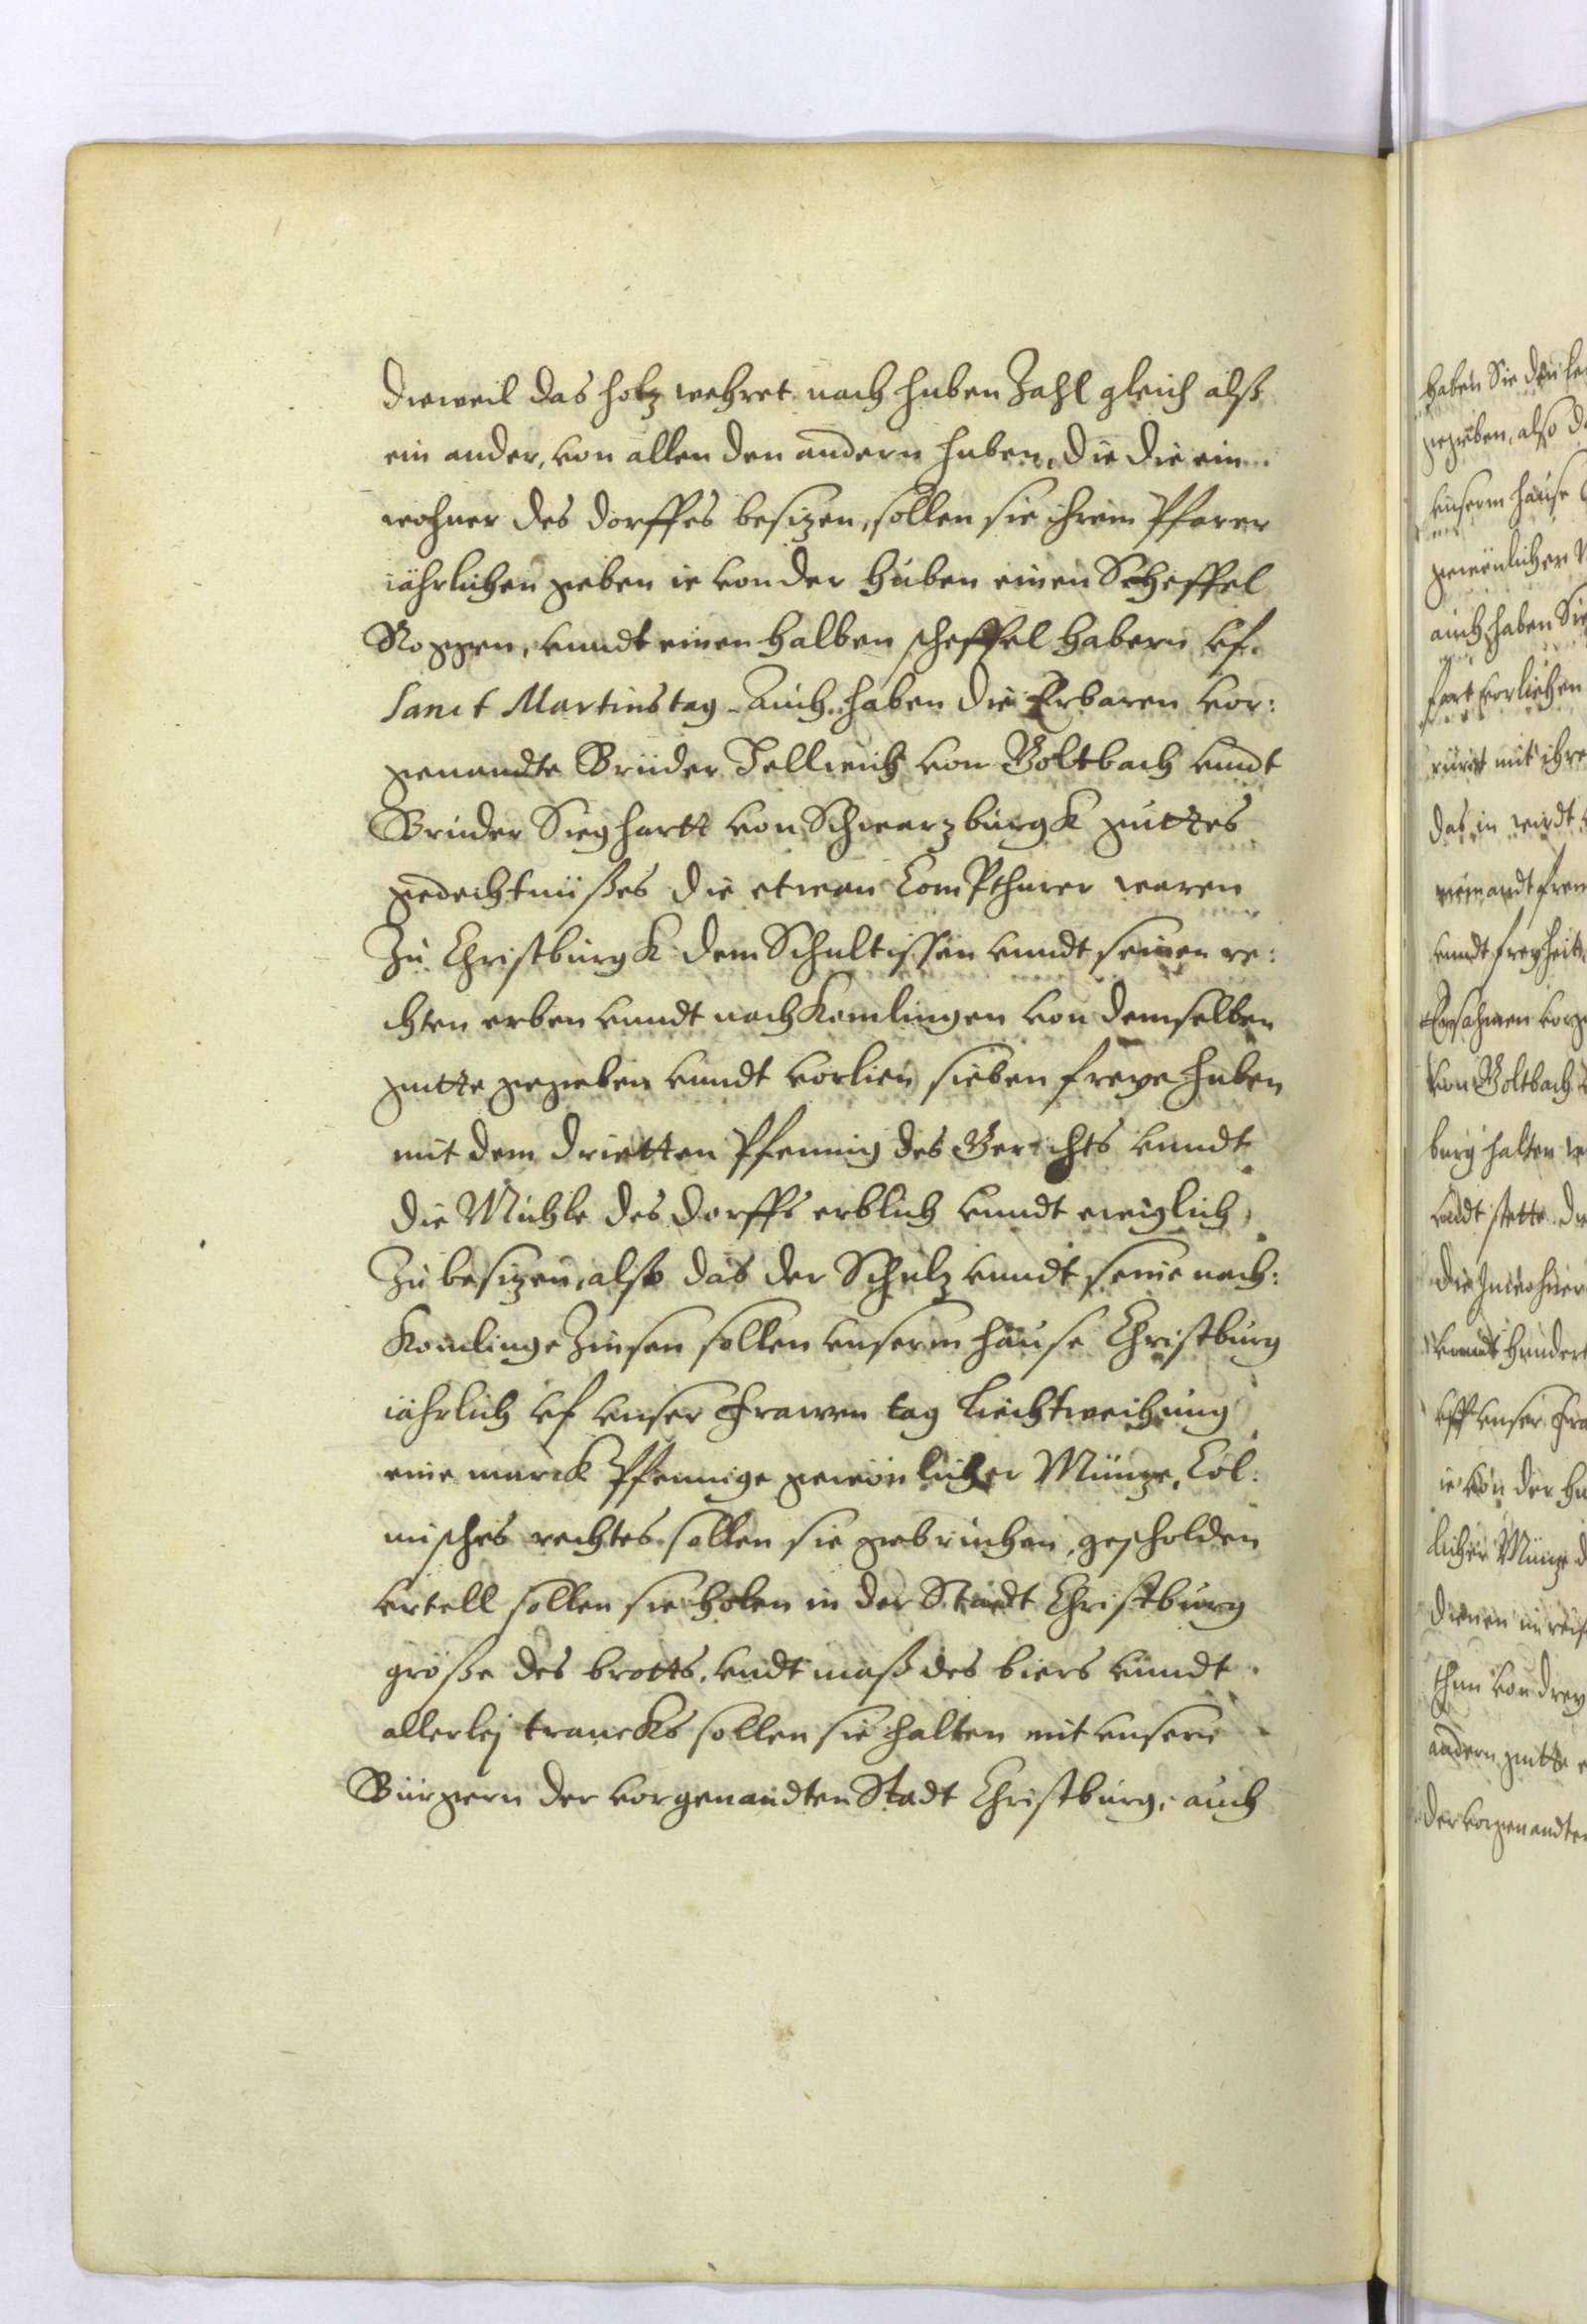 dieweil das holtz wehret nach huben Zahl gleich alß
ein ander, von allen den andern huben, die die ein
wohner des dorffes besizen, sollen sie ihrem Pfarer
iährlichen geben ie von der huben einen Scheffel
Roggen, vnndt einen halben scheffel habern vf
Sanct Martins tag. Auch haben die Erbaren vor:
genandte Brüder von Goltbach vnndt
Bruder Sieghartt von Schwarzburgk guttes
gedechtnüßes die etwan Compthurer waren
Zu Christburgk dem Schultissen vnndt seinen re:
chten erben vnndt nachkomlingen von demselben
gutte gegeben vnndt vorlien sieben freye huben
mit dem drietten Pfennig des Gerichts vnndt
die Mühle des dorffs erblich vnndt ewiglich
Zu besizen, also das der Schulz vnndt seine nach:
Komlinge Zinsen sollen vnserm hause Christburg
iährlich vf vnser Frawen tag Liechtweihung
eine marck Pfennige gewönlicher Münze, Col:
misches rechtes sollen sie gebrauchen, gescholden
vrtell sollen sie holen in der Stadt Christburg
größe des brotts, vndt maß des biers vnndt
allerlej trancks sollen sie halten mit vnsere
Bürgern der vorgenandten Stadt Christburg, auch
haben Sie
gegeben, also
vnserm hause
gewönlicher
auch haben Sie
mit ihre
das in
niemandt
vnndt freyheit
vorge
von Goltbach
burg halten
vndt stette
die Inwohner
vnndt hundert
vff vnser
ie von der
licher Münze
dienen
thun von drey
andern gutte
der vorgenandten